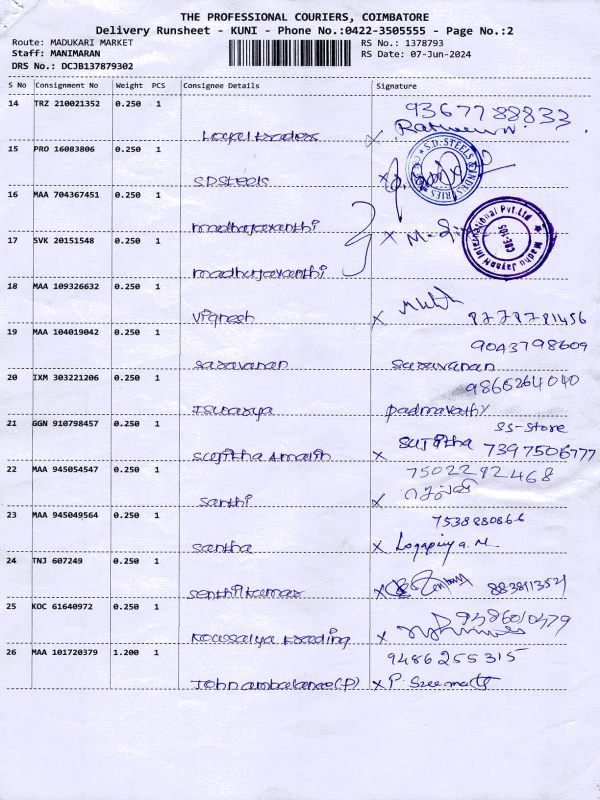 THE PROFESSIONAL COURIERS, COIMBATORE
Delivery Runsheet - KUNI - Phone No.:0422-3505555 - Page No.:2
Route: MADUKARI MARKET
RS No.: 1378793
Staff: MANIMARAN
RS Date: 07-Jun-2024
DRS No.: DCJB137879302
S No Consignment No Weight PCS Consignee Details Signature
14 TRZ 210021352 0.250 1
9367788833
Loyal traders x
15 PRO 16083806 0.250 1
S.D. STEELS & INDUSTRIES
SDSteels x
16 MAA 704367451 0.250 1
madhajayanthi
x M-
Madhu Jayanti International Pvt.Ltd
CBE-105
17 SVK 20151548 0.250 1
madhurjayanthi
18 MAA 109326632 0.250 1
vignesh x 8778781456
19 MAA 104019042 0.250 1
9043798609
saravanan saravanan
20 IXM 303221206 0.250 1
9865264040
padmavathy
21 GGN 910798457 0.250 1
SS-Store
x sujitha 7397506777
22 MAA 945054547 0.250 1
7502292468
santhi x
23 MAA 945049564 0.250 1
7538880866
santha x Logapriya.M
24 TNJ 607249 0.250 1
senthilkumar x
25 KOC 61640972 0.250 1
9386010479
kowsalya trading x
26 MAA 101720379 1.200 1
9486255315
John ambalanae(P) x P.